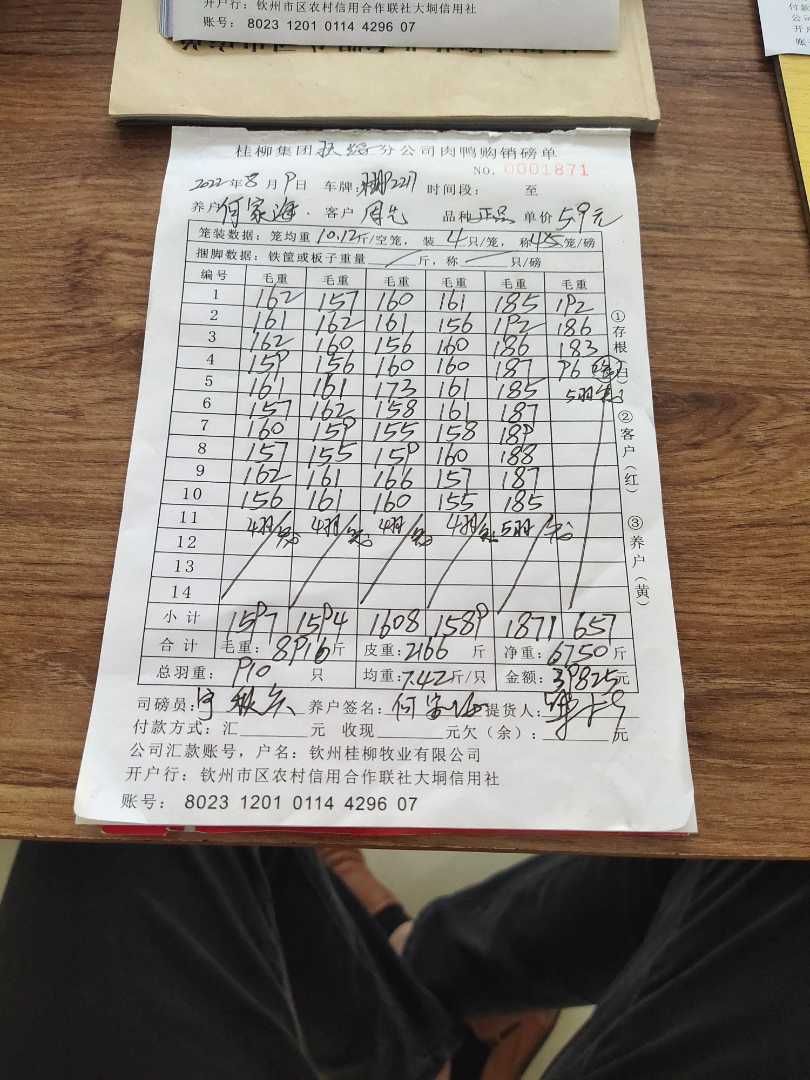 开户行：钦州市区农村信用合作联社大垌信用社
账号：8023 1201 0114 4296 07
桂柳集团扶绥分公司肉鸭购销磅单
NO. 0001871
2022年8月9日 车牌： 时间段： 至
养户 何家海 客户 周先 品种 正品 单价 5.9元
笼装数据：笼均重 10.12斤/空笼， 装 4只/笼， 称 4.5笼/磅
捆脚数据：铁筐或板子重量 / 斤，称 一 只/磅
编号 毛重 毛重 毛重 毛重 毛重 毛重
1 162 157 160 161 185 192
2 161 162 161 156 192 186
3 162 160 156 160 186 183
4 159 156 160 160 187 96
5 161 161 173 161 185 5羽/笼
6 157 162 158 161 187
7 160 159 155 158 189
8 157 155 159 160 188
9 162 161 166 157 187
10 156 161 160 155 185
11 4羽/笼 4羽/笼 4羽/笼 4羽/笼 5羽/笼
12
13
14
小计 1597 1594 1608 1589 1871 657
合计 毛重：8916斤 皮重：2166 斤 净重：6750斤
总羽重： 910 只 均重：7.42斤/只 金额：39825元
司磅员： 养户签名： 提货人：
付款方式：汇 元 收现 元欠（余）： 元
公司汇款账号，户名：钦州桂柳牧业有限公司
开户行：钦州市区农村信用合作联社大垌信用社
账号： 8023 1201 0114 4296 07
①存根（白）
②客户（红）
③养户（黄）